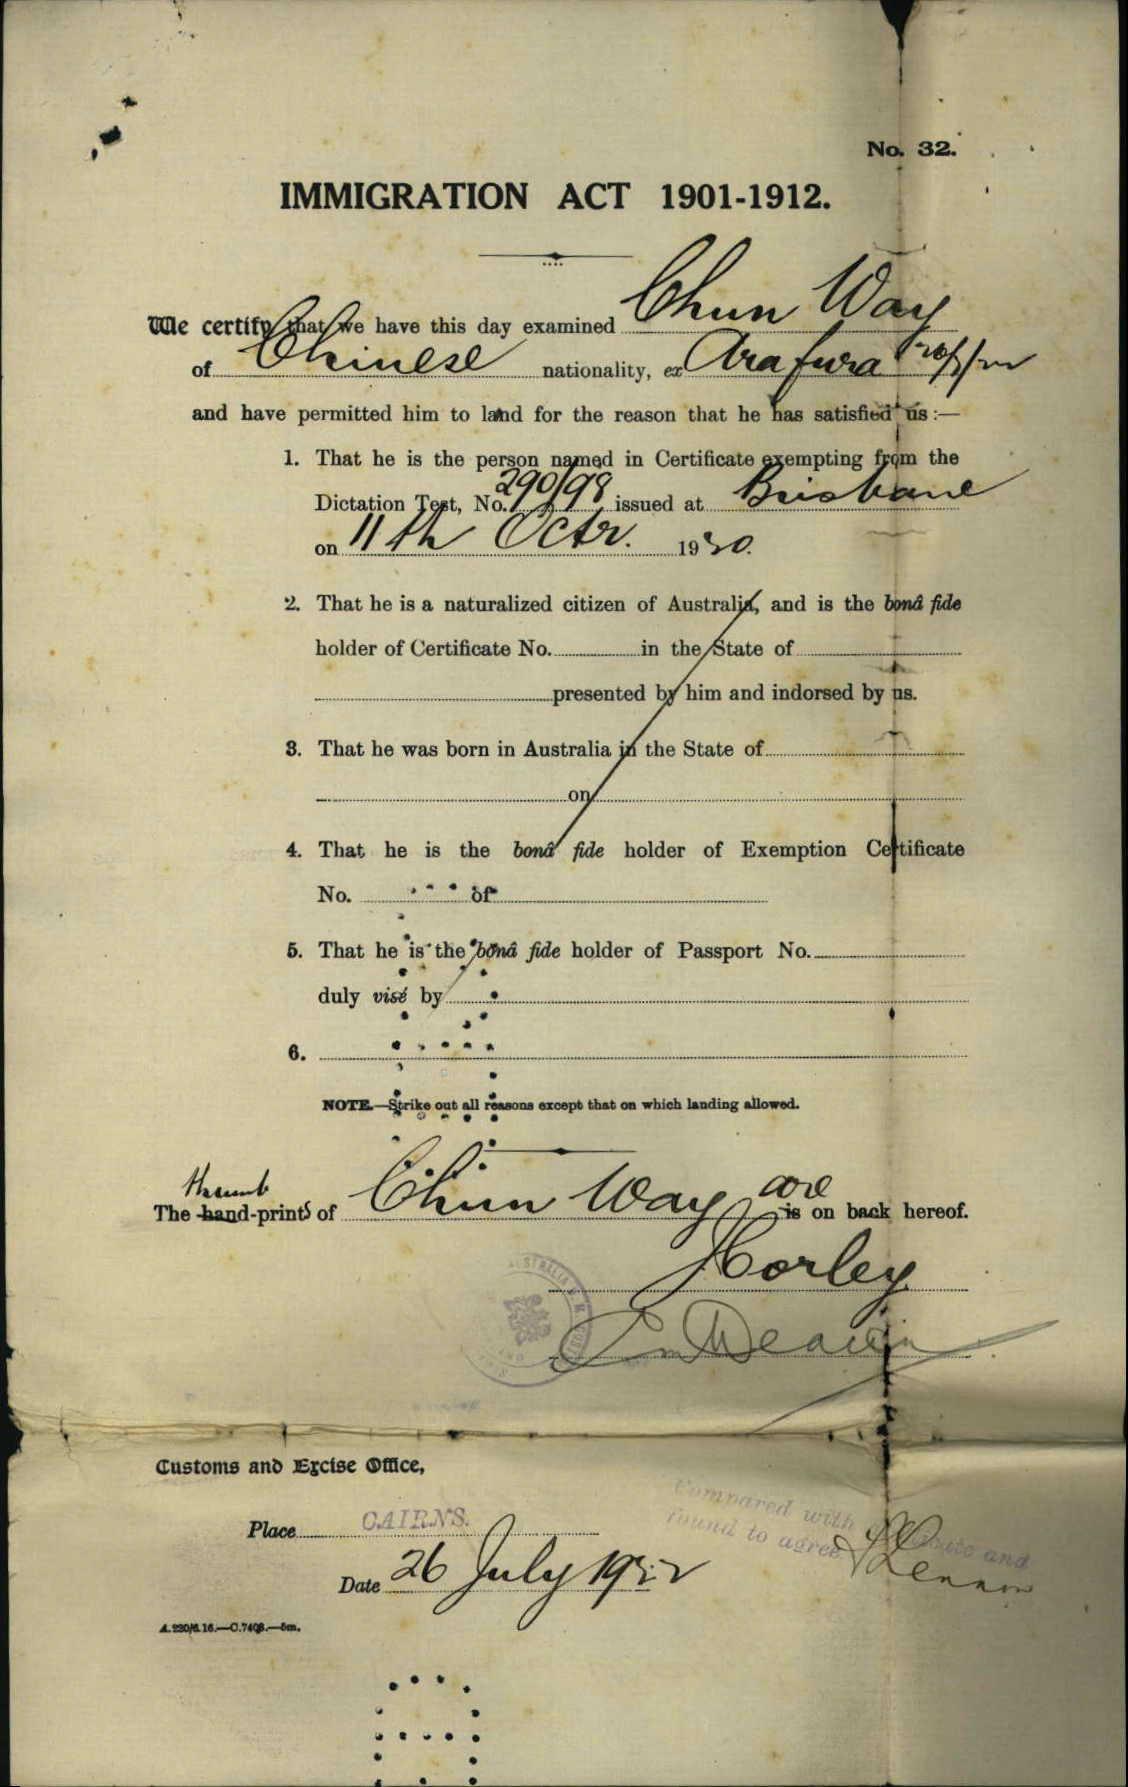 No. 32.
IMMIGRATION ACT 1901-1912.
We certify that we have this day examined Chun Way
of Chinese nationality, ex Arafura
and have permitted him to land for the reason that he has satisfied us:—
1. That he is the person named in Certificate exempting from the
Dictation Test, No. 290/98 issued at Brisbane
on 11th Octr. 1920.
2. That he is a naturalized citizen of Australia, and is the bonâ fide
holder of Certificate No. in the State of
presented by him and indorsed by us.
3. That he was born in Australia in the State of
on
4. That he is the bonâ fide holder of Exemption Certificate
No. of
5. That he is the bonâ fide holder of Passport No.
duly visé by
6.
NOTE.—Strike out all reasons except that on which landing allowed.
Thumb
The hand-prints of Chun Way are is on back hereof.
Horley
Customs and Excise Office,
Place CAIRNS.
Compared with and
found to agree
Date 26 July 1922
A.220/6.16.—C.7408.—5m.